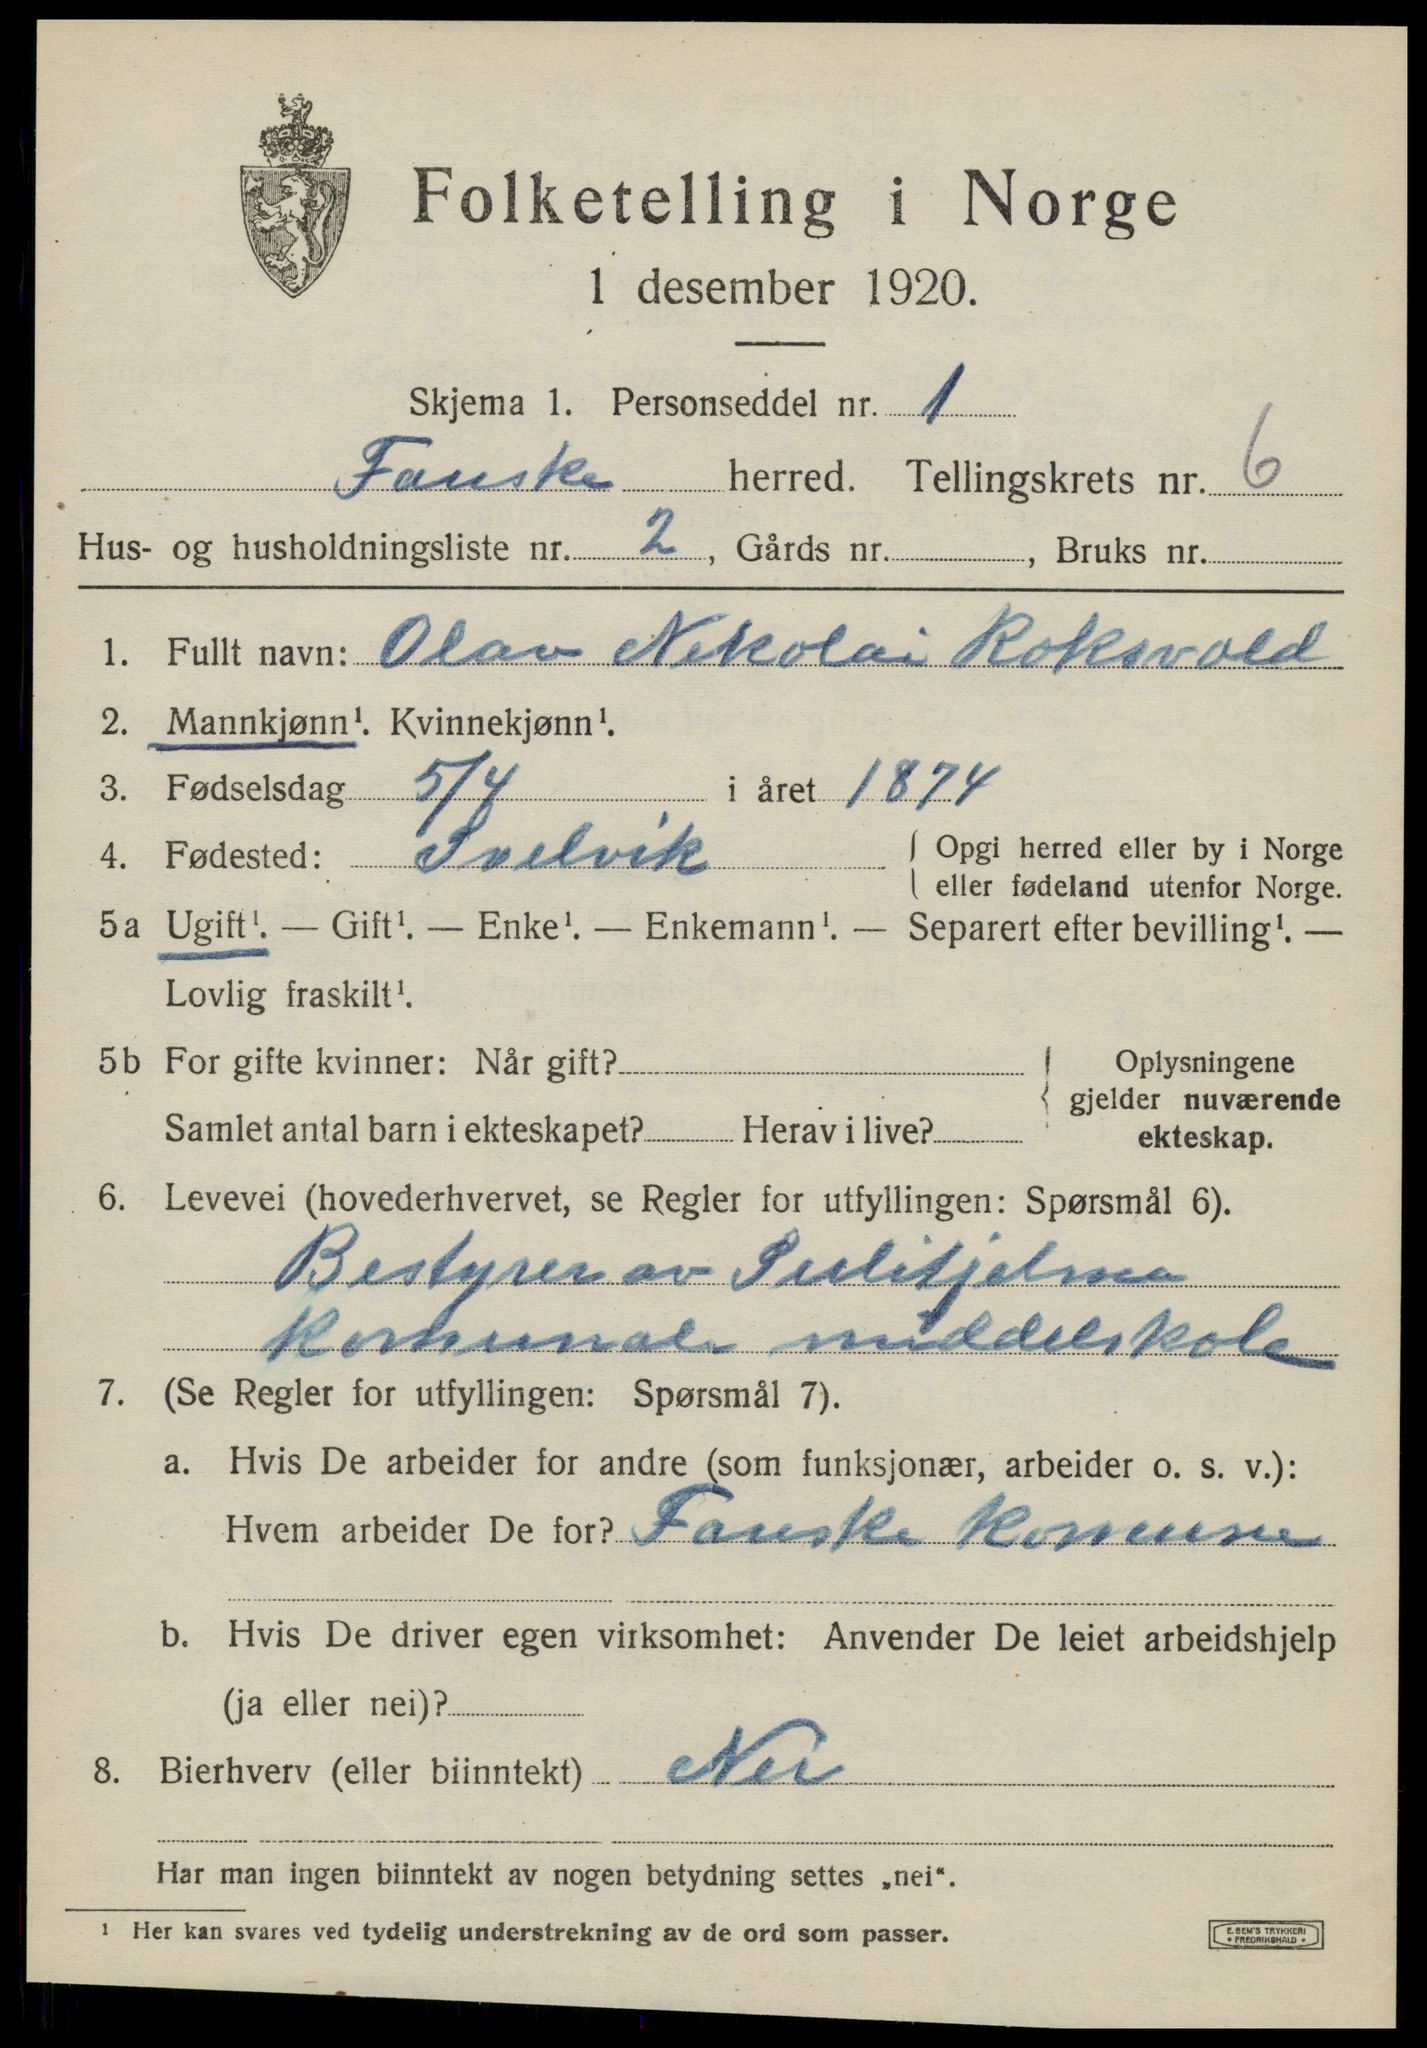 Folketelling i Norge
1 desember 1920.
Skjema 1. Personseddel nr. 1
Fauske herred. Tellingskrets nr. 6
Hus- og husholdningsliste nr. 2, Gårds nr. , Bruks nr.
1. Fullt navn: Olav Nikolai Roksvold
2. Mannkjønn¹. Kvinnekjønn¹.
3. Fødselsdag 5/4 i året 1874
4. Fødested: Svelvik { Opgi herred eller by i Norge
eller fødeland utenfor Norge.
5a Ugift¹. — Gift¹. — Enke¹. — Enkemann¹. — Separert efter bevilling¹. —
Lovlig fraskilt¹.
5b For gifte kvinner: Når gift?
Samlet antal barn i ekteskapet? Herav i live?
{ Oplysningene
gjelder nuværende
ekteskap.
6. Levevei (hovederhvervet, se Regler for utfyllingen: Spørsmål 6).
Bestyrer av Sulitjelma
komunale middelskole
7. (Se Regler for utfyllingen: Spørsmål 7).
a. Hvis De arbeider for andre (som funksjonær, arbeider o. s. v.):
Hvem arbeider De for? Fauske komune
b. Hvis De driver egen virksomhet: Anvender De leiet arbeidshjelp
(ja eller nei)?
8. Bierhverv (eller biinntekt) Nei
Har man ingen biinntekt av nogen betydning settes „nei“.
¹ Her kan svares ved tydelig understrekning av de ord som passer.
E. SEM'S TRYKKERI
• FREDRIKSHALD •